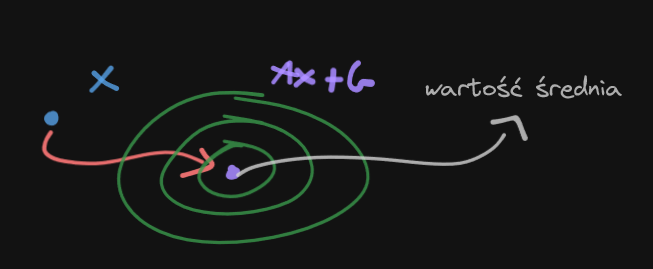 X
Ax + G
wartość średnia